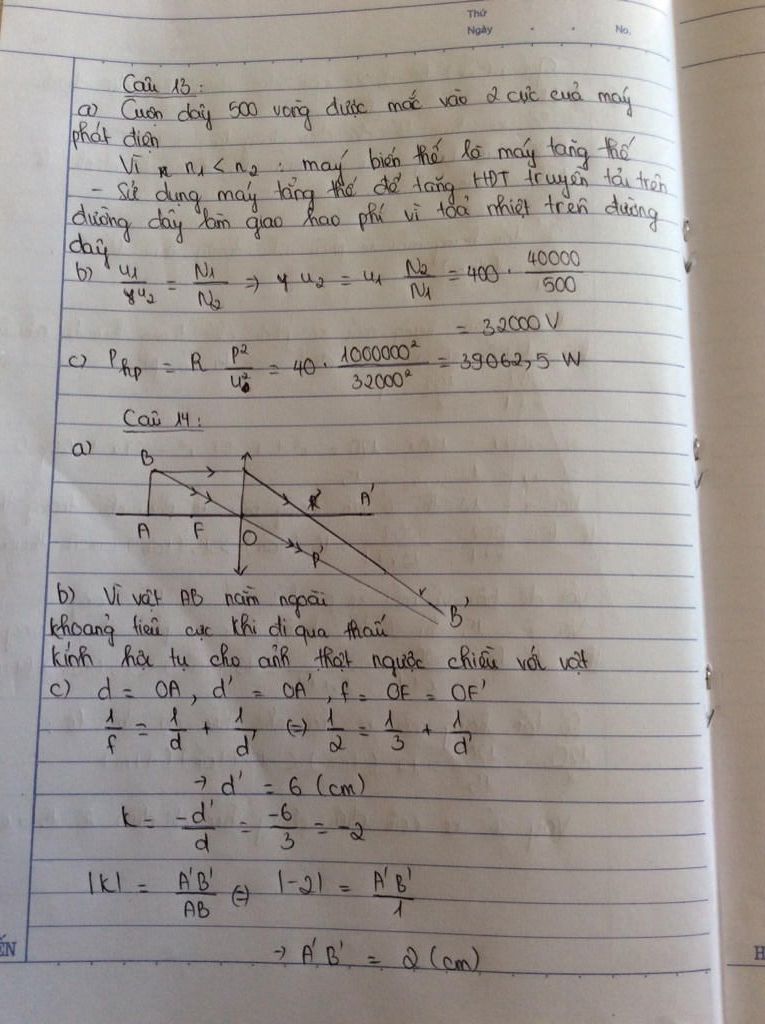 Thứ
Ngày . . No.
Câu 13:
a) Cuộn dây 500 vòng được mắc vào 2 cực của máy
phát điện
Vì n1 < n2 : máy biến thế là máy tăng thế
- Sử dụng máy tăng thế để tăng HĐT truyền tải trên
đường dây làm giảo hao phí vì toả nhiệt trên đường
dây
b) u1/u2 = N1/N2 => u2 = u1 N2/N1 = 400 . 40000/500
= 32000 V
c) Php = R P²/u² = 40 . 1000000²/32000² = 39062,5 W
Câu 14:
a)
B A F O F' A' B'
b) Vì vật AB nằm ngoài
khoảng tiêu cực khi đi qua thấu
kính hội tụ cho ảnh thật ngược chiều với vật
c) d = OA, d' = OA', f = OF = OF'
1/f = 1/d + 1/d' (=) 1/2 = 1/3 + 1/d'
→ d' = 6 (cm)
k = -d'/d = -6/3 = -2
|k| = A'B'/AB (=) |-2| = A'B'/1
→ A'B' = 2 (cm)
ẾN
H